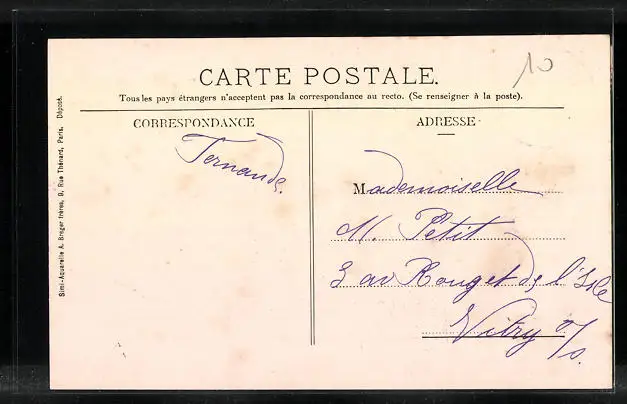 10
CARTE POSTALE.
Tous les pays étrangers n'acceptent pas la correspondance au recto. (Se renseigner à la poste).
CORRESPONDANCE
Fernande.
ADRESSE
Mademoiselle
M. Petit
3 av Rouget de l'Isle
Vitry s/s.
Simi-Aquarelle A. Breger frères, 9, Rue Thénard, Paris. Déposé.